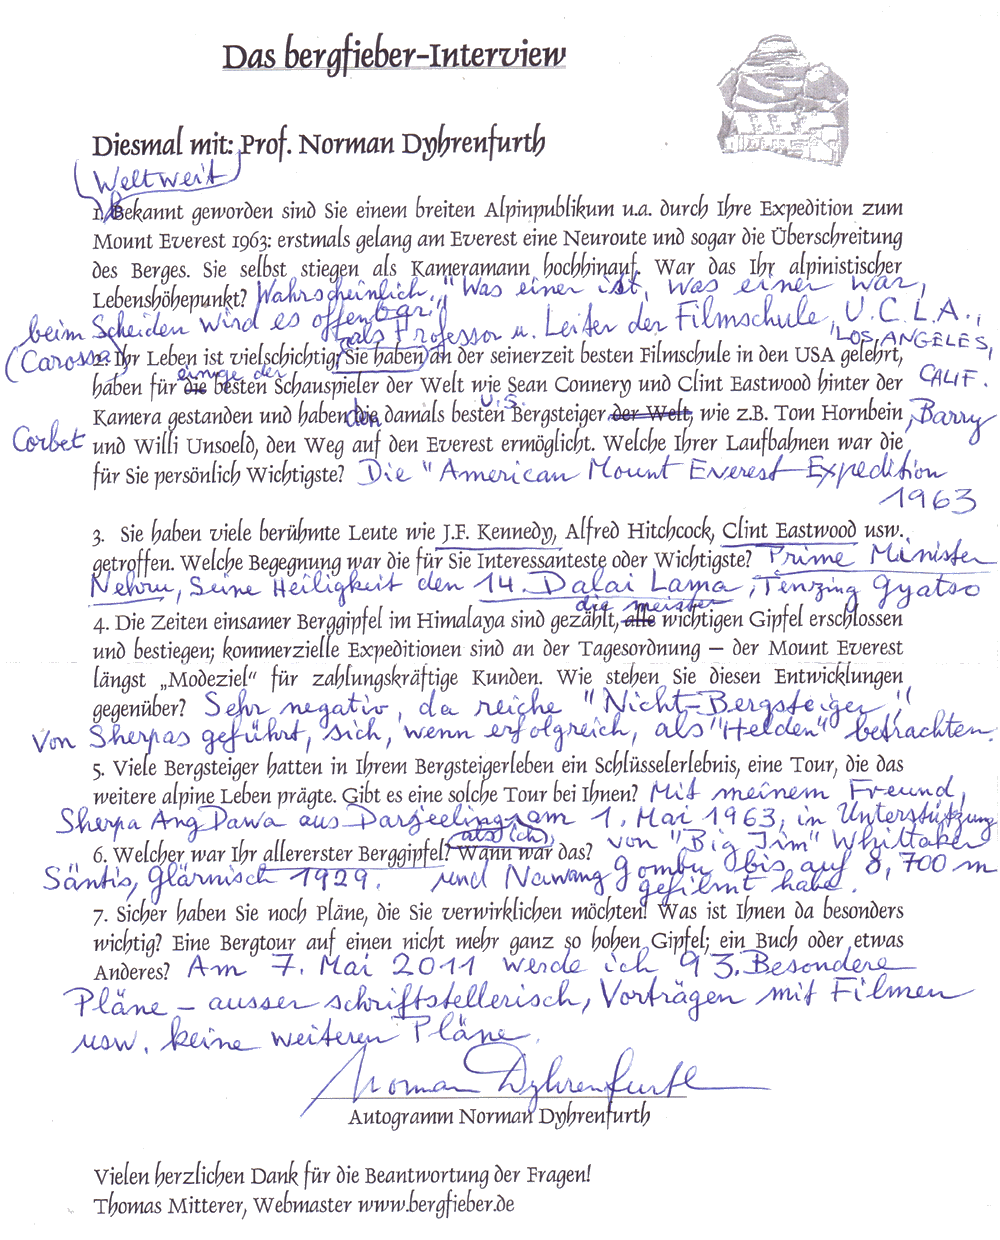 Das bergfieber-Interview
Diesmal mit: Prof. Norman Dyhrenfurth
Weltweit
1. Bekannt geworden sind Sie einem breiten Alpinpublikum u.a. durch Ihre Expedition zum
Mount Everest 1963: erstmals gelang am Everest eine Neuroute und sogar die Überschreitung
des Berges. Sie selbst stiegen als Kameramann hochhinauf. War das Ihr alpinistischer
Lebenshöhepunkt? Wahrscheinlich. "Was einer ist, was einer war,
beim Scheiden wird es offenbar"
(Carossa)
als Professor u. Leiter der Filmschule, U.C.L.A.,
LOS ANGELES,
2. Ihr Leben ist vielschichtig, Sie haben an der seinerzeit besten Filmschule in den USA gelehrt,
CALIF.
einige der
haben für die besten Schauspieler der Welt wie Sean Connery und Clint Eastwood hinter der
U.S.
Kamera gestanden und haben den damals besten Bergsteiger der Welt, wie z.B. Tom Hornbein, Barry
Corbet und Willi Unsoeld, den Weg auf den Everest ermöglicht. Welche Ihrer Laufbahnen war die
für Sie persönlich Wichtigste? Die "American Mount Everest Expedition
1963
3. Sie haben viele berühmte Leute wie J.F. Kennedy, Alfred Hitchcock, Clint Eastwood usw.
getroffen. Welche Begegnung war die für Sie Interessanteste oder Wichtigste? Prime Minister
Nehru, Seine Heiligkeit den 14. Dalai Lama, Tenzing Gyatso
die meisten
4. Die Zeiten einsamer Berggipfel im Himalaya sind gezählt, alle wichtigen Gipfel erschlossen
und bestiegen; kommerzielle Expeditionen sind an der Tagesordnung – der Mount Everest
längst „Modeziel" für zahlungskräftige Kunden. Wie stehen Sie diesen Entwicklungen
gegenüber? Sehr negativ, da reiche "Nicht-Bergsteiger",
von Sherpas geführt, sich, wenn erfolgreich, als "Helden" betrachten.
5. Viele Bergsteiger hatten in Ihrem Bergsteigerleben ein Schlüsselerlebnis, eine Tour, die das
weitere alpine Leben prägte. Gibt es eine solche Tour bei Ihnen? Mit meinem Freund,
Sherpa Ang Dawa aus Darjeeling, am 1. Mai 1963, in Unterstützung
als ich
von "Big Jim" Whittaker
und Nawang Gombu bis auf 8,700 m
gefilmt habe.
6. Welcher war Ihr allererster Berggipfel? Wann war das?
Säntis, Glärnisch 1929.
7. Sicher haben Sie noch Pläne, die Sie verwirklichen möchten! Was ist Ihnen da besonders
wichtig? Eine Bergtour auf einen nicht mehr ganz so hohen Gipfel; ein Buch oder etwas
Anderes? Am 7. Mai 2011 werde ich 93. Besondere
Pläne – ausser schriftstellerisch, Vorträgen mit Filmen
usw. keine weiteren Pläne.
Norman Dyhrenfurth
Autogramm Norman Dyhrenfurth
Vielen herzlichen Dank für die Beantwortung der Fragen!
Thomas Mitterer, Webmaster www.bergfieber.de